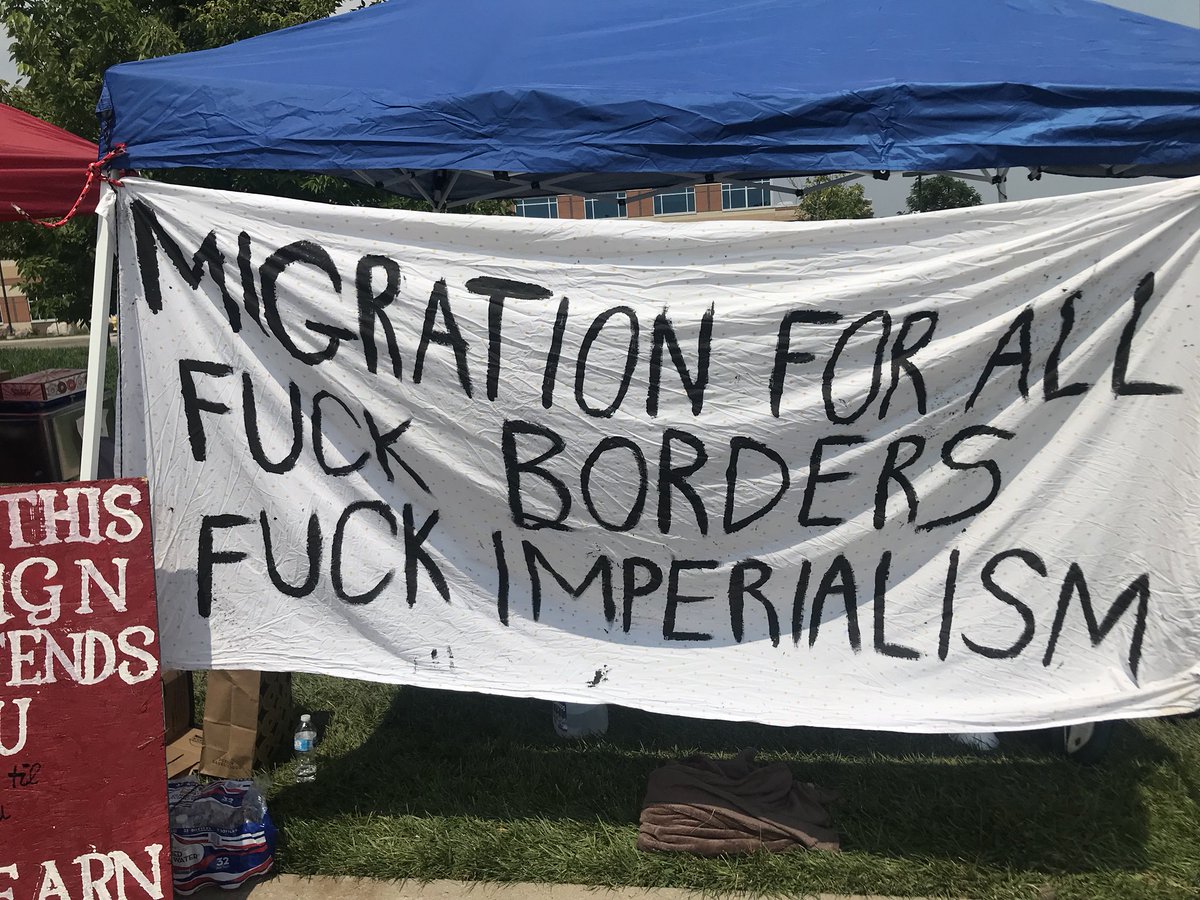 MIGRATION FOR ALL
FUCK BORDERS
FUCK IMPERIALISM
THIS
IGN
TENDS
U
til
EARN
32